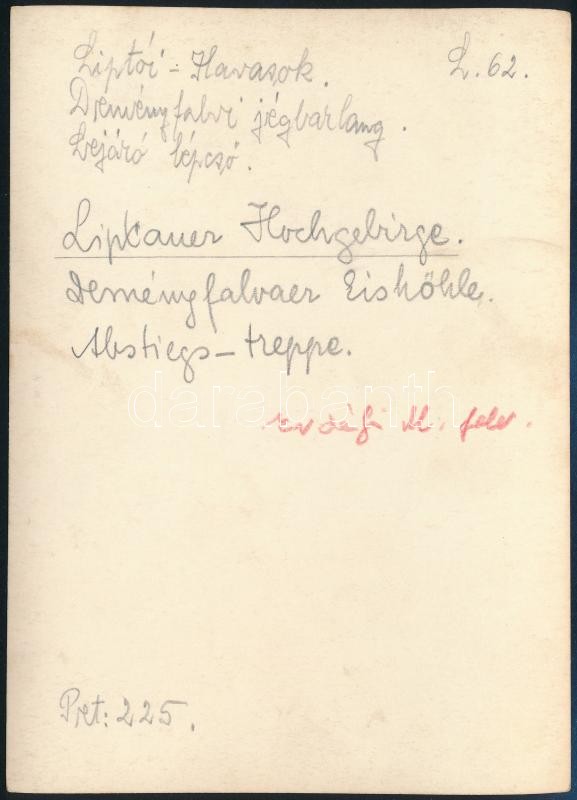 Liptói - Havasok. L. 62.
Deményfalvi jégbarlang.
Lejáró lépcső.
Liptauer Hochgebirge.
Deményfalvaer Eishöhle.
Abstiegs-treppe.
darabanth
Erdélyi M. felv.
Pret: 225.